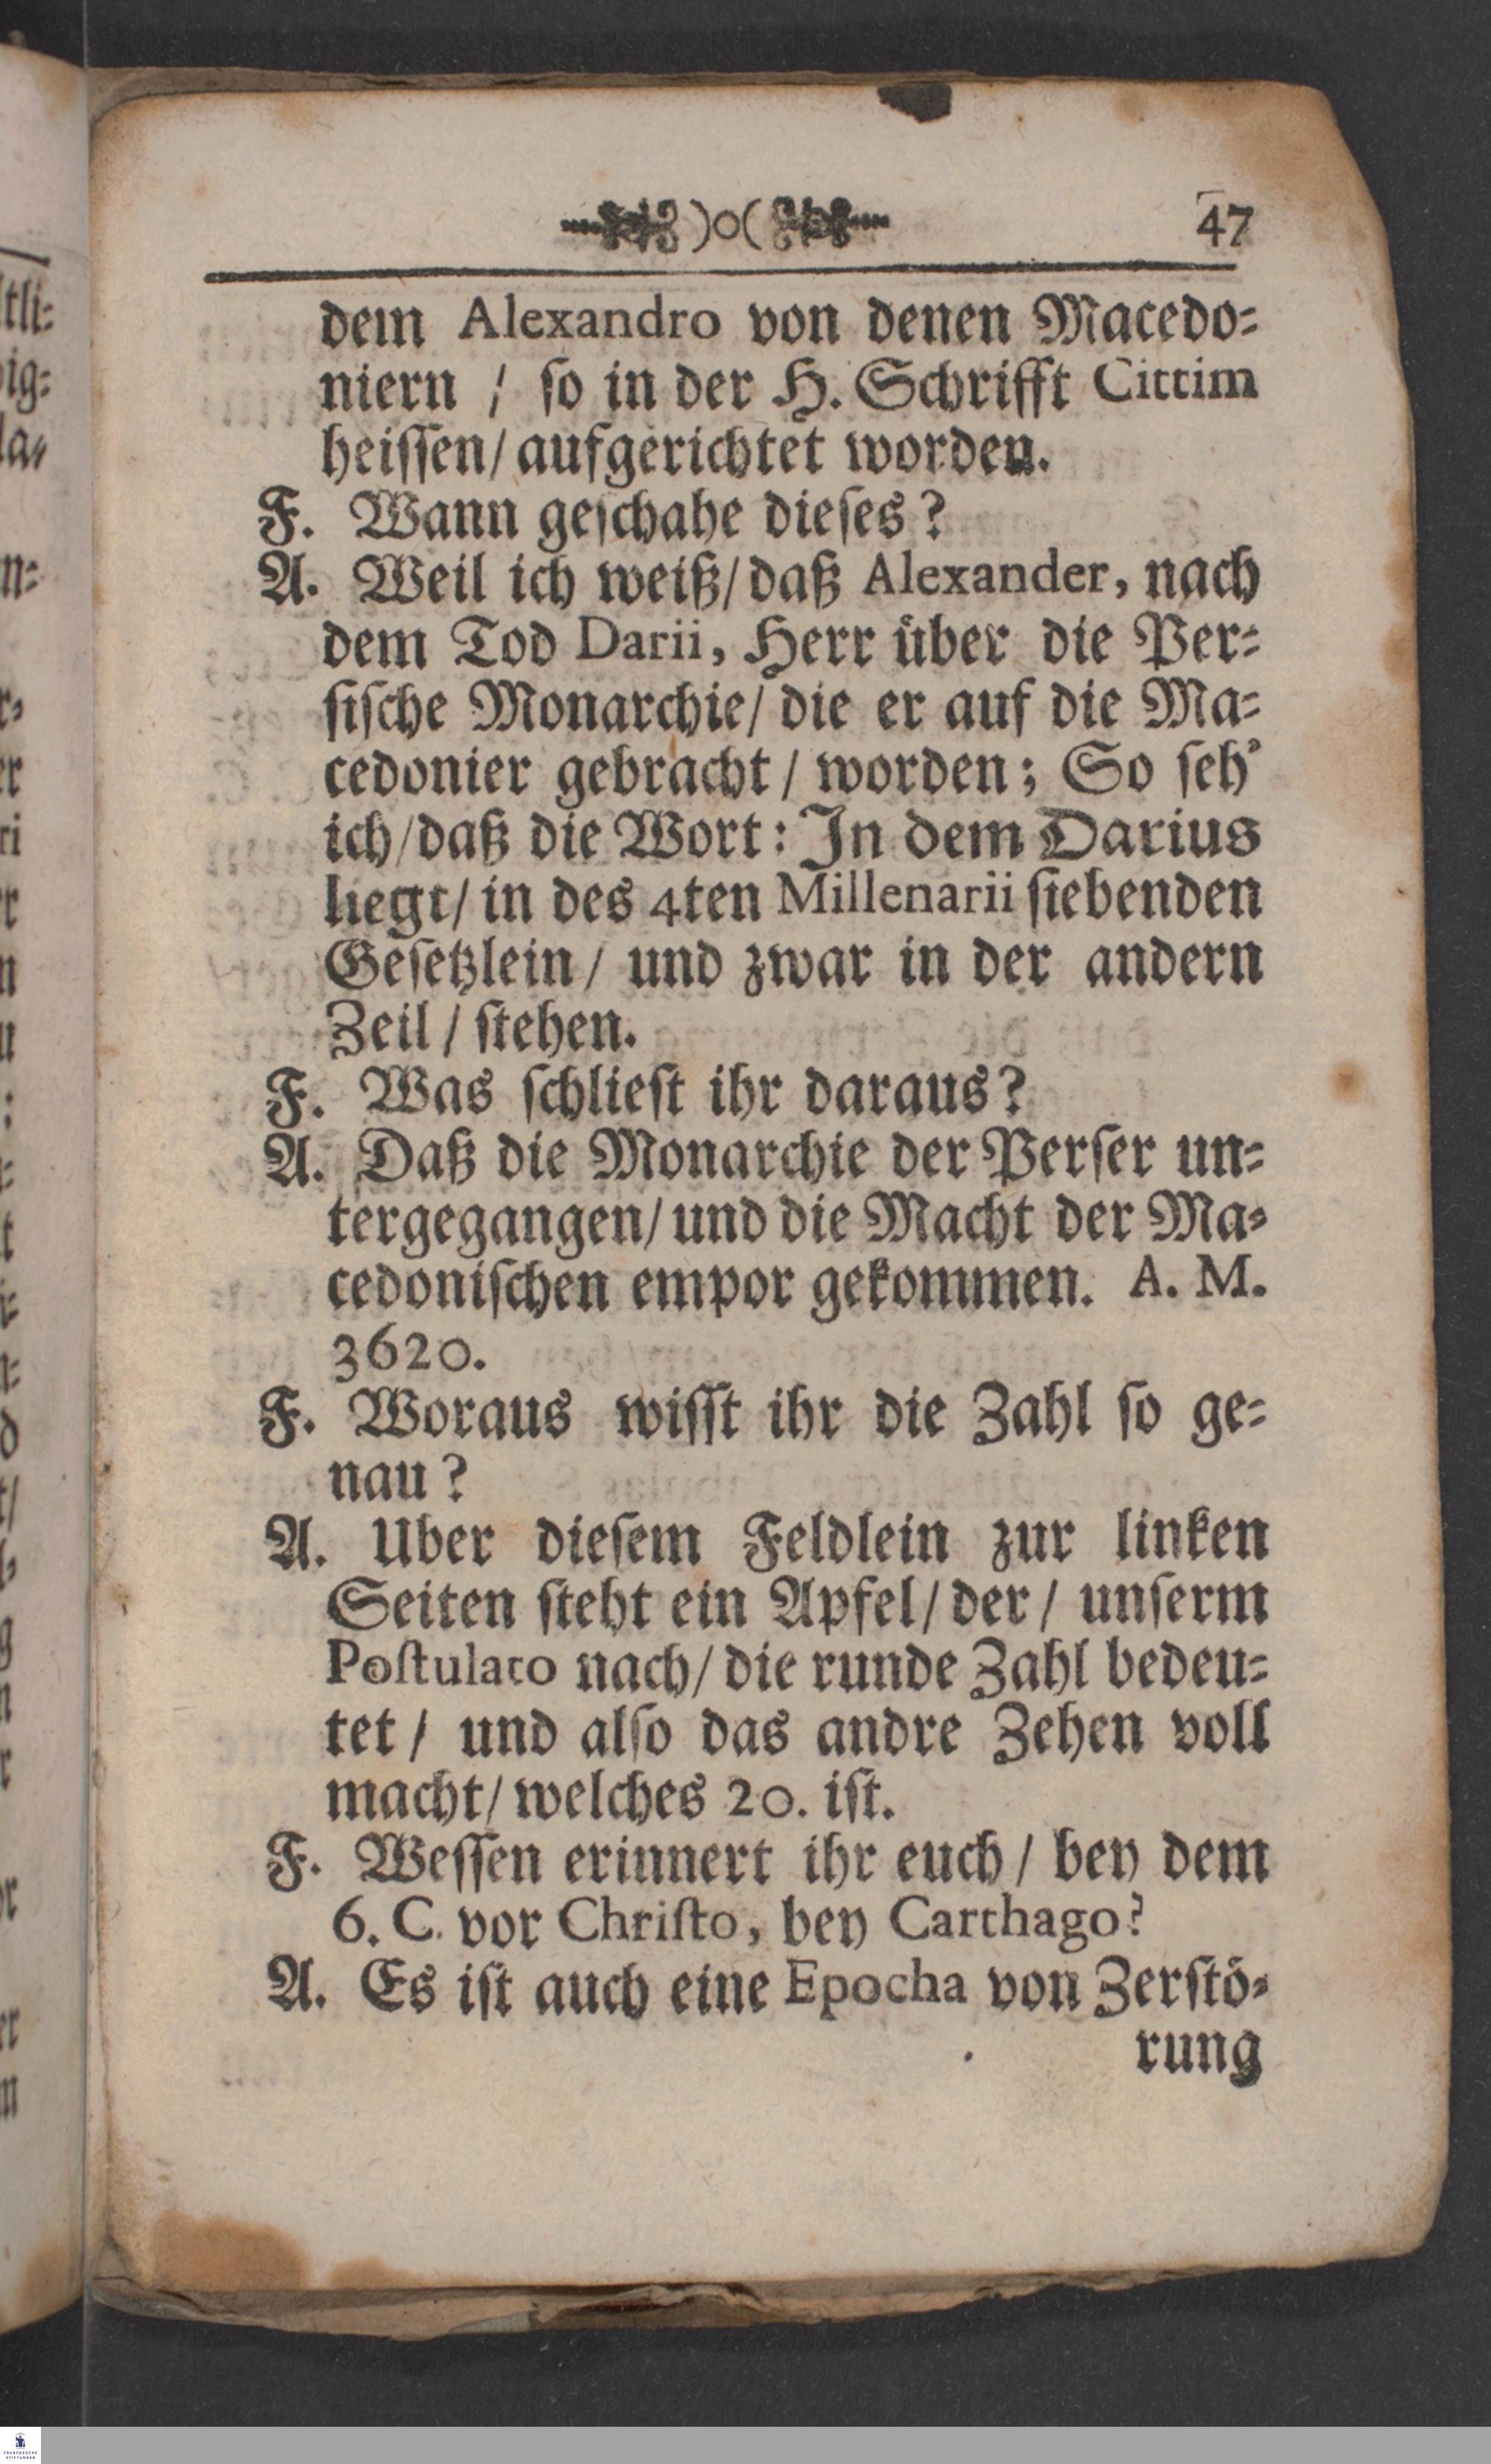 )o( 47
dem Alexandro von denen Macedo⸗
niern / ſo in der H. Schrifft Cittim
heiſſen/ aufgerichtet worden.
F. Wann geſchahe dieſes?
A. Weil ich weiß/ daß Alexander, nach
dem Tod Darii, Herr uͤber die Per⸗
ſiſche Monarchie/ die er auf die Ma⸗
cedonier gebracht / worden; So ſeh'
ich/ daß die Wort: In dem Darius
liegt/ in des 4ten Millenarii ſiebenden
Geſetzlein / und zwar in der andern
Zeil / ſtehen.
F. Was ſchlieſt ihr daraus?
A. Daß die Monarchie der Perſer un⸗
tergegangen/ und die Macht der Ma⸗
cedoniſchen empor gekommen. A. M.
3620.
F. Woraus wiſſt ihr die Zahl ſo ge⸗
nau?
A. Uber dieſem Feldlein zur linken
Seiten ſteht ein Apfel/ der / unſerm
Poſtulato nach/ die runde Zahl bedeu⸗
tet / und alſo das andre Zehen voll
macht/ welches 20. iſt.
F. Weſſen erinnert ihr euch / bey dem
6. C. vor Chriſto, bey Carthago?
A. Es iſt auch eine Epocha von Zerſtoͤ⸗
rung